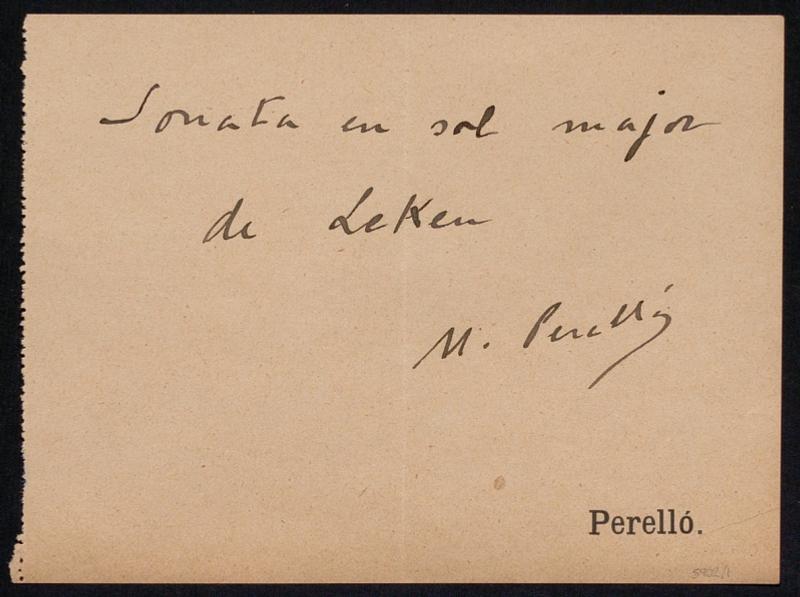 Sonata en sol major
de Leken
M. Perelló
Perelló.
5902/1